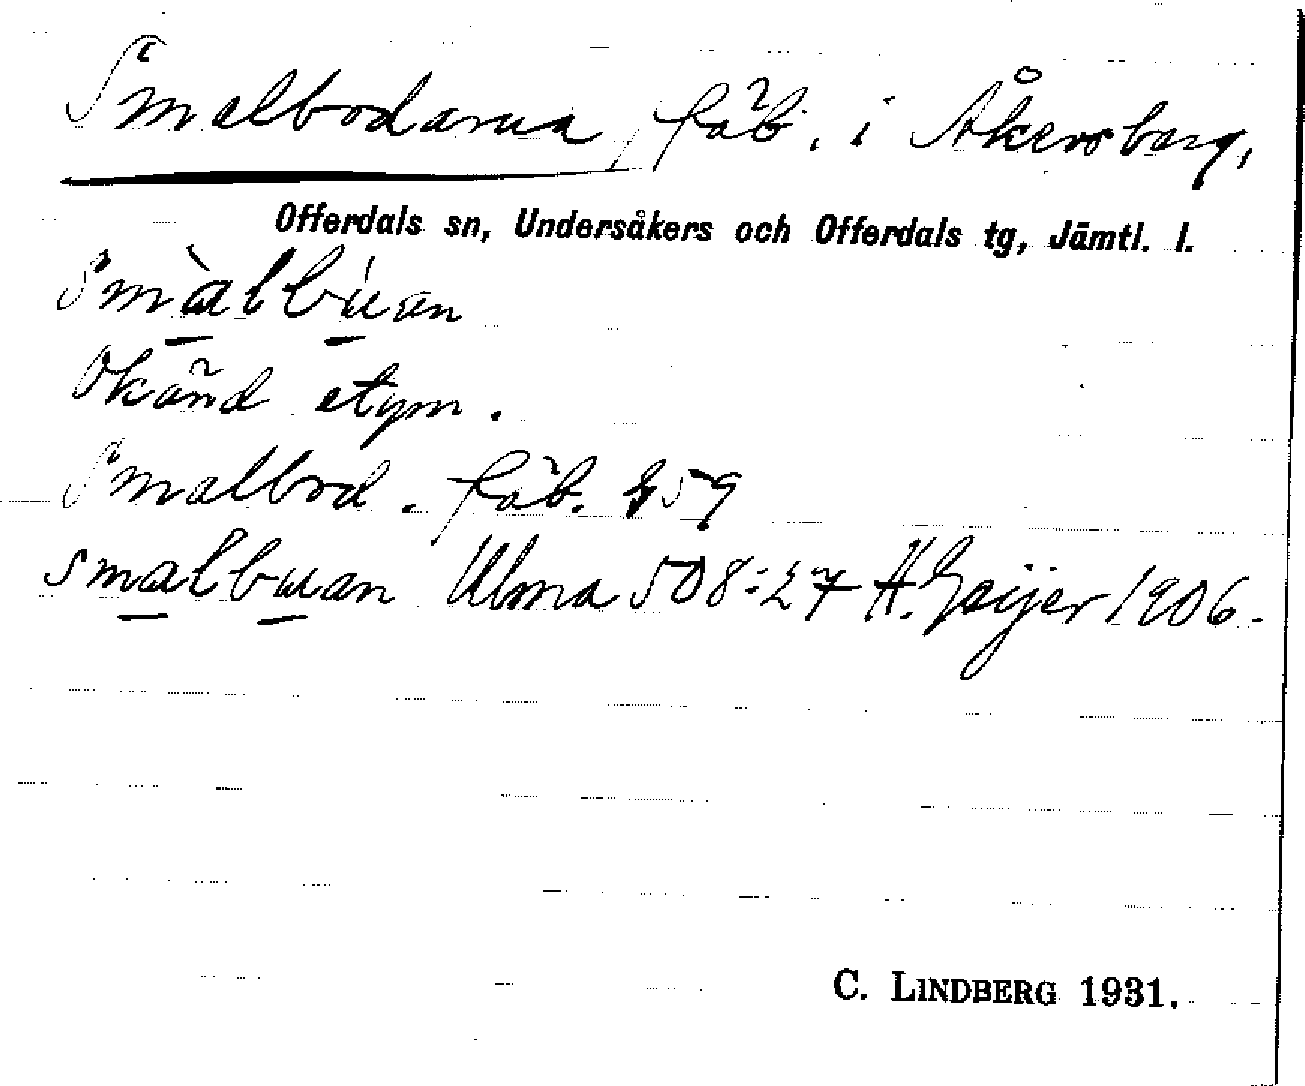 Smalbodarna, fäb. i Åkersberg,
Offerdals sn, Undersåkers och Offerdals tg, Jämtl. l.
Smàlbúan
Okänd etym.
Smalbod. fäb. 459
smalbuan Ulma 508:27 H. Geijer 1906.
C. LINDBERG 1931.